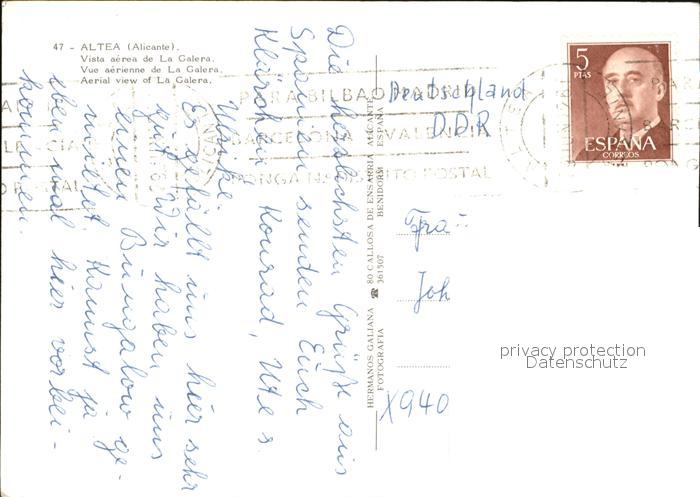 47 - ALTEA (Alicante).
Vista aérea de La Galera.
Vue aérienne de La Galera.
Aerial view of La Galera.
Die herzlichsten Grüße aus
Spanien senden Euch
Klärchen, Konrad, Ute s
Ulrike.
Es gefällt uns hier sehr
gut. Wir haben uns
einen Bungalow ge-
mietet. Kannst ja
eben mal hier vorbei-
kommen.
HERMANOS GALIANA ☎ 80 CALLOSA DE ENSARRIA ALICANTE
FOTOGRAFIA 361507 BENIDORM ESPAÑA
PARA BILBAO MADRID
BARCELONA VALENCIA
PONGA NA DTO POSTAL
5
PTAS
ESPAÑA
CORREOS
Deutschland
DDR
Frau
Joh
X940
privacy protection
Datenschutz